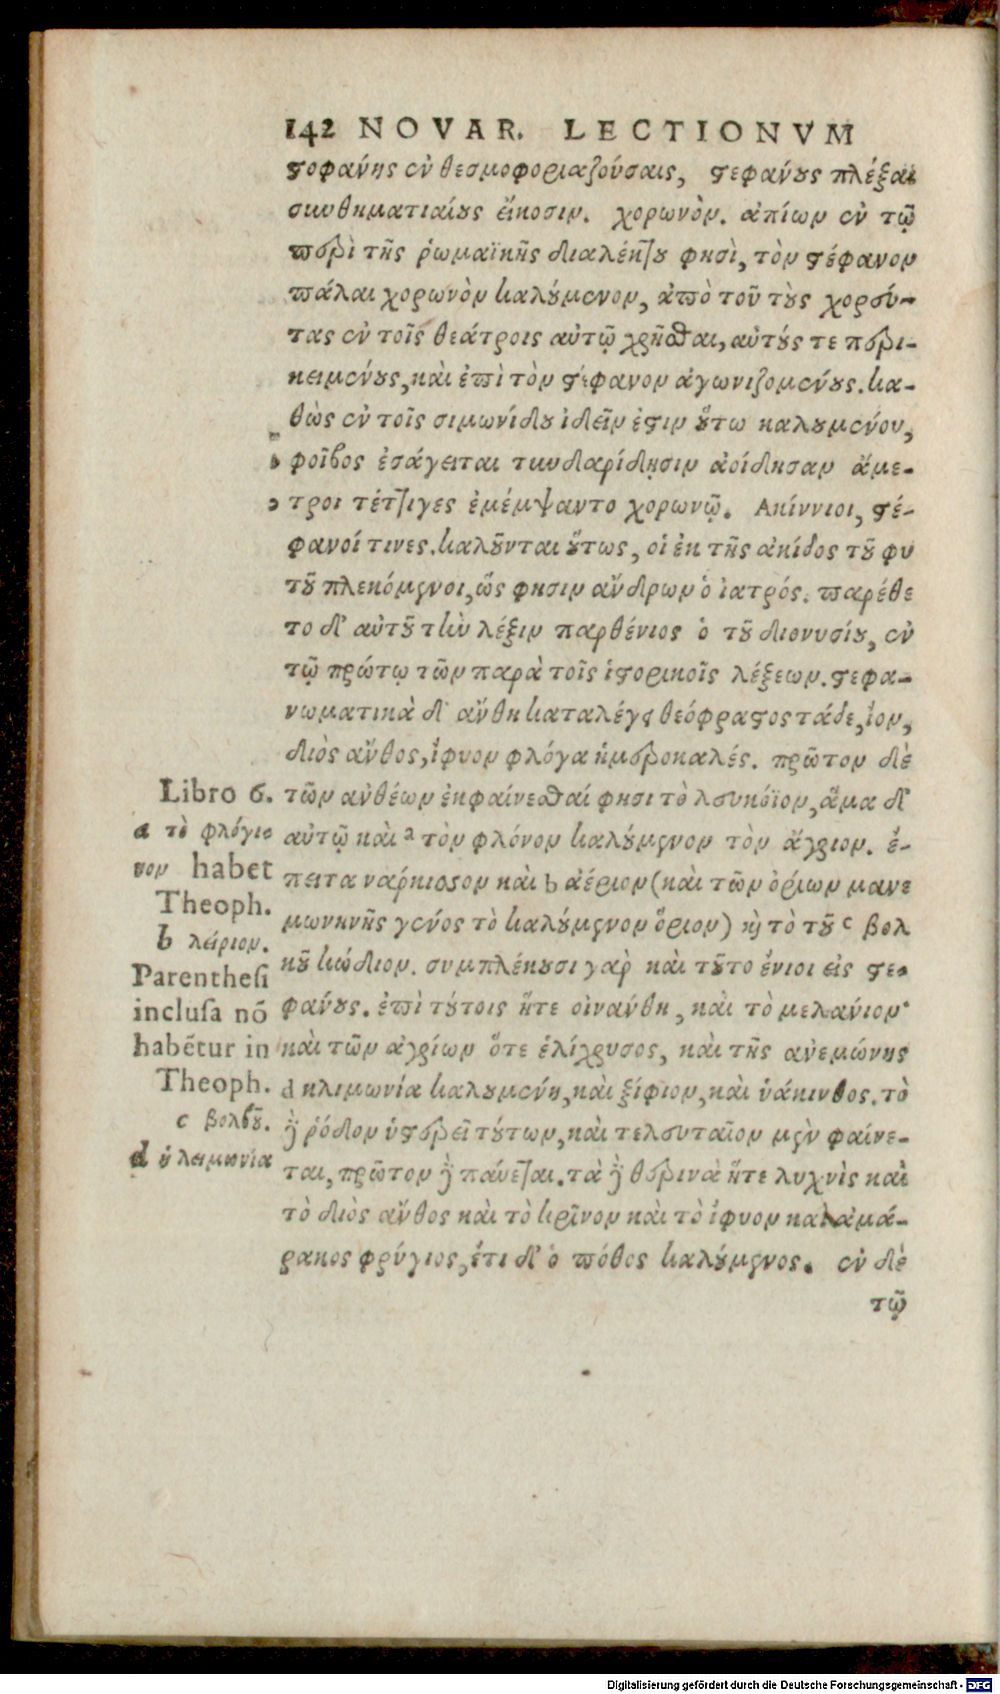 142 NOVAR. LECTIONVM
στοφάνης ἐν θεσμοφοριαζούσαις, στεφάνους πλέξαι
συνθηματιαίους εἴκοσιν. χορωνὸν. ἀπίων ἐν τῷ
περὶ τῆς ῥωμαϊκῆς διαλέκτου φησὶ, τὸν στέφανον
πάλαι χορωνὸν καλούμενον, ἀπὸ τοῦ τοὺς χορευ-
τὰς ἐν τοῖς θεάτροις αὐτῷ χρῆσθαι, αὐτούς τε περι-
κειμένους, καὶ ἐπὶ τὸν στέφανον ἀγωνιζομένους. κα-
θὼς ἐν τοῖς σιμωνίδου ἰδεῖν ἐστιν οὕτω καλουμένου,
φοῖβος ἐσάγειται τυνδαρίδῃσιν ἀοίδησαν ἄμε-
τροι τέττιγες ἐμέμψαντο χορωνῷ. Ακίννιοι, στέ-
φανοί τινες. καλοῦνται οὕτως, οἱ ἐκ τῆς ἀκίδος τοῦ φυ
τοῦ πλεκόμενοι, ὥς φησιν ἄνδρων ὁ ἰατρός. παρέθε
το δ' αὐτοῦ τὴν λέξιν παρθένιος ὁ τοῦ διονυσίου, ἐν
τῷ πρώτῳ τῶν παρὰ τοῖς ἱστορικοῖς λέξεων. στεφα-
νωματικὰ δ' ἄνθη καταλέγει θεόφραστος τάδε, ἴον,
διὸς ἄνθος, ἴφυον φλόγα ἡμεροκαλές. πρῶτον δὲ
Libro 6. τῶν ἀνθέων ἐκφαίνεσθαί φησι τὸ λευκόϊον, ἅμα δ'
a τὸ φλόγι- αὐτῷ καὶ a τὸν φλόνον καλούμενον τὸν ἄγριον. ἔ-
νον habet πειτα νάρκισσον καὶ b ἀέριον (καὶ τῶν ὀρίων μανε
Theoph. μωνηνῆς γένος τὸ καλούμενον ὄριον) καὶ τὸ τοῦ c βολ
b λείριον. κοῦ κώδιον. συμπλέκουσι γὰρ καὶ τοῦτο ἔνιοι εἰς στε-
Parenthesi φάνους. ἐπὶ τούτοις ἥτε οἰνάνθη, καὶ τὸ μελάνιον·
inclusa nō
habētur in καὶ τῶν ἀγρίων ὅτε ἑλίχρυσος, καὶ τῆς ἀνεμώνης
Theoph. d κλιμωνία καλουμένη, καὶ ξίφιον, καὶ ὑάκινθος. τὸ
c βολβοῦ. δὲ ῥόδιον ὑστερεῖ τούτων, καὶ τελευταῖον μὲν φαίνε-
d ἡ λειμωνία ται, πρῶτον δὲ παύεται. τὰ δὲ θερινὰ ἥτε λυχνὶς καὶ
τὸ διὸς ἄνθος καὶ τὸ κρῖνον καὶ τὸ ἴφυον καὶ ἀμά-
ρακος φρύγιος, ἔτι δ' ὁ πόθος καλούμενος. ἐν δὲ
τῷ
Digitalisierung gefördert durch die Deutsche Forschungsgemeinschaft - DFG